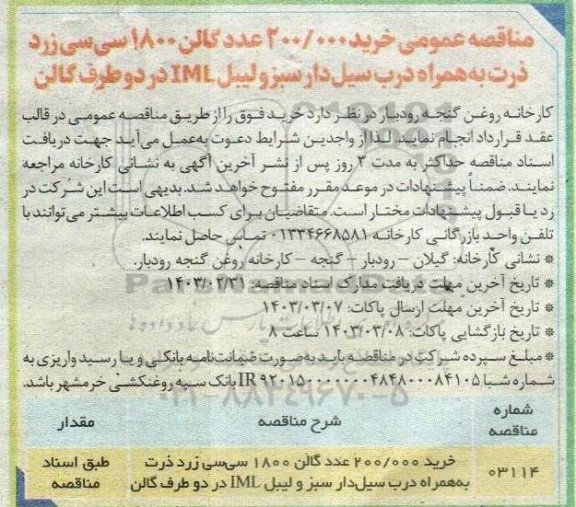 مناقصه عمومی خرید ۲۰۰/۰۰۰ عدد گالن ۱۸۰۰ سی سی زرد
ذرت به همراه درب سیل دار سبز و لیبل IML در دو طرف گالن
کارخانه روغن گنجه رودبار در نظر دارد خرید فوق را از طریق مناقصه عمومی در قالب
عقد قرارداد انجام نماید. لذا از واجدین شرایط دعوت به عمل می آید جهت دریافت
اسناد مناقصه حداکثر به مدت ۳ روز پس از نشر آخرین آگهی به نشانی کارخانه مراجعه
نمایند. ضمناً پیشنهادات در موعد مقرر مفتوح خواهد شد. بدیهی است این شرکت در
رد یا قبول پیشنهادات مختار است. متقاضیان برای کسب اطلاعات بیشتر می توانند با
تلفن واحد بازرگانی کارخانه ۰۱۳۳۴۶۶۸۵۸۱ تماس حاصل نمایند.
* نشانی کارخانه: گیلان - رودبار - گنجه - کارخانه روغن گنجه رودبار.
* تاریخ آخرین مهلت دریافت مدارک اسناد مناقصه: ۱۴۰۳/۰۲/۳۱
* تاریخ آخرین مهلت ارسال پاکات: ۱۴۰۳/۰۳/۰۷
* تاریخ بازگشایی پاکات: ۱۴۰۳/۰۳/۰۸ ساعت ۸
* مبلغ سپرده شرکت در مناقصه باید به صورت ضمانت نامه بانکی و یا رسید واریزی به
شماره شبا IR ۹۲۰۱۵۰۰۰۰۰۰۰۴۸۴۸۰۰۰۸۴۱۰۵ بانک سپه روغنکشی خرمشهر باشد.
شماره مناقصه شرح مناقصه مقدار
۰۳۱۱۴ خرید ۲۰۰/۰۰۰ عدد گالن ۱۸۰۰ سی سی زرد ذرت طبق اسناد
به همراه درب سیل دار سبز و لیبل IML در دو طرف گالن مناقصه
۰۲۱-۸۸۳۴۹۶۷۰-۵